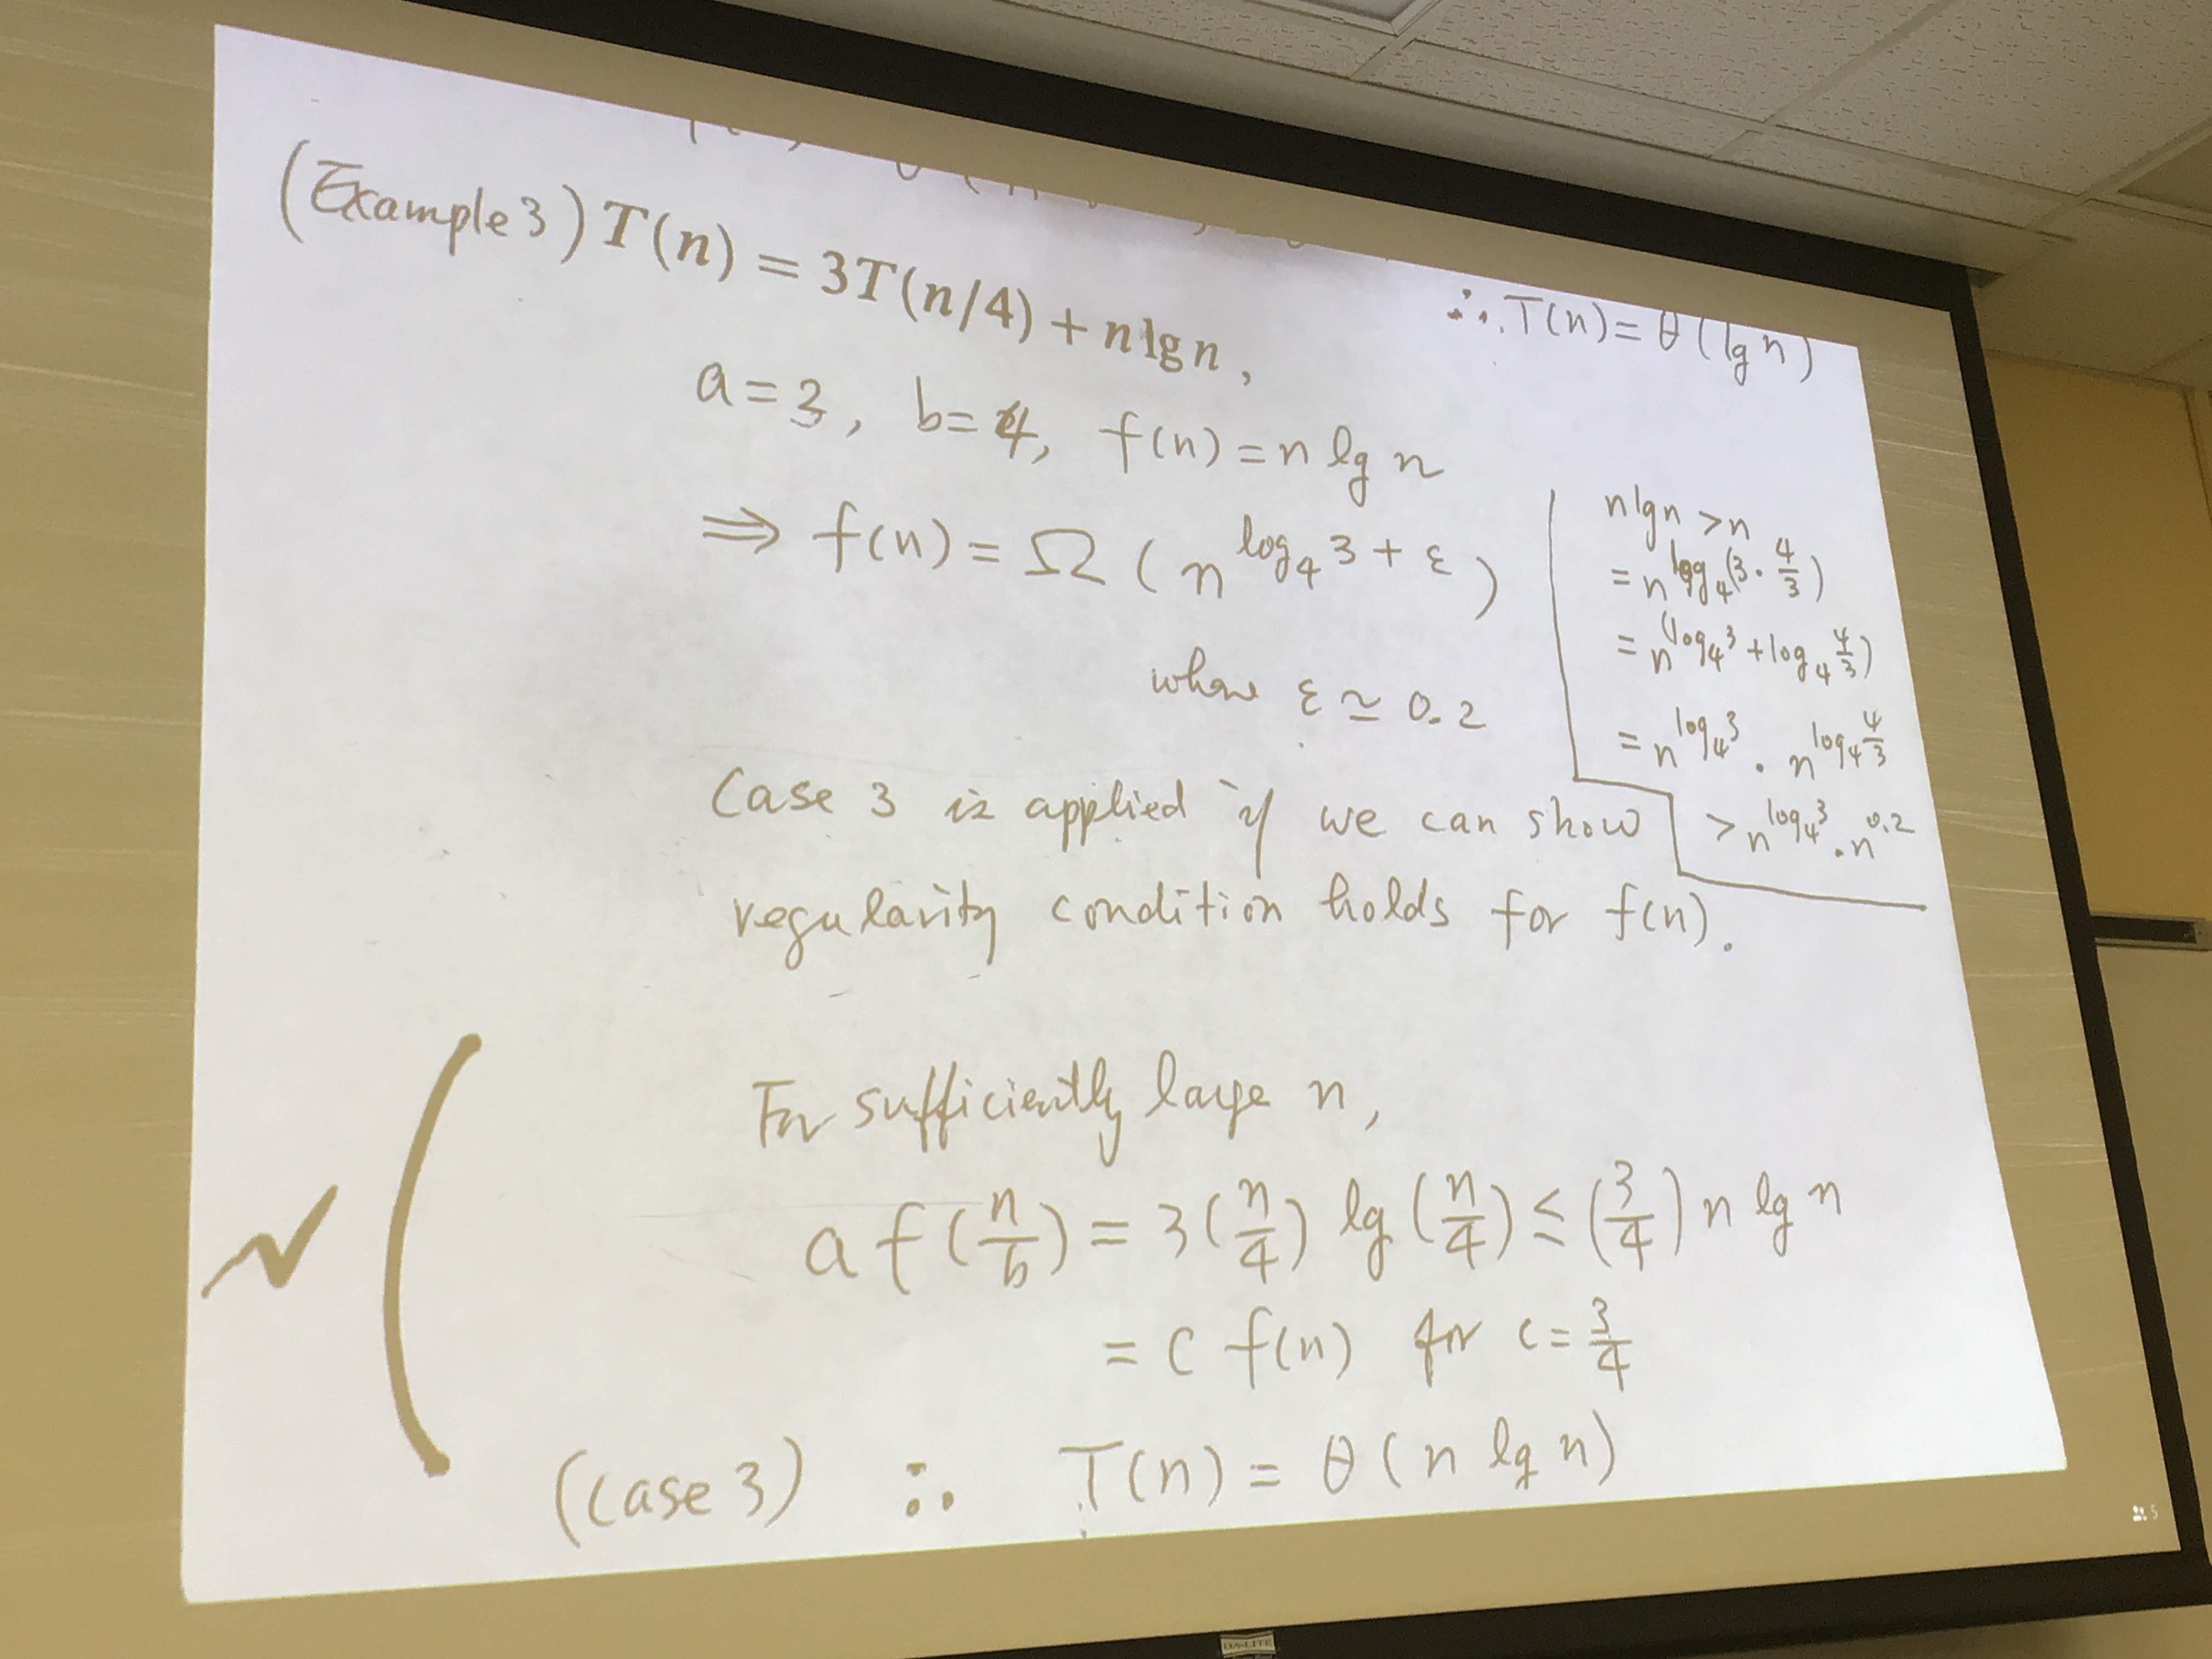 (Example 3) T(n) = 3T(n/4) + n lg n,
∴ T(n) = θ(lg n)
a = 3, b = 4, f(n) = n lg n
⇒ f(n) = Ω(n^{log_4 3 + ε})
where ε ≃ 0.2
n lg n > n
= n^{log_4(3 · 4/3)}
= n^{(log_4 3 + log_4 4/3)}
= n^{log_4 3} · n^{log_4 4/3}
> n^{log_4 3} · n^{0.2}
Case 3 is applied if we can show
regularity condition holds for f(n).
For sufficiently large n,
a f(n/b) = 3(n/4) lg(n/4) ≤ (3/4) n lg n
= c f(n) for c = 3/4
(case 3) ∴ T(n) = θ(n lg n)
5
DA-LITE